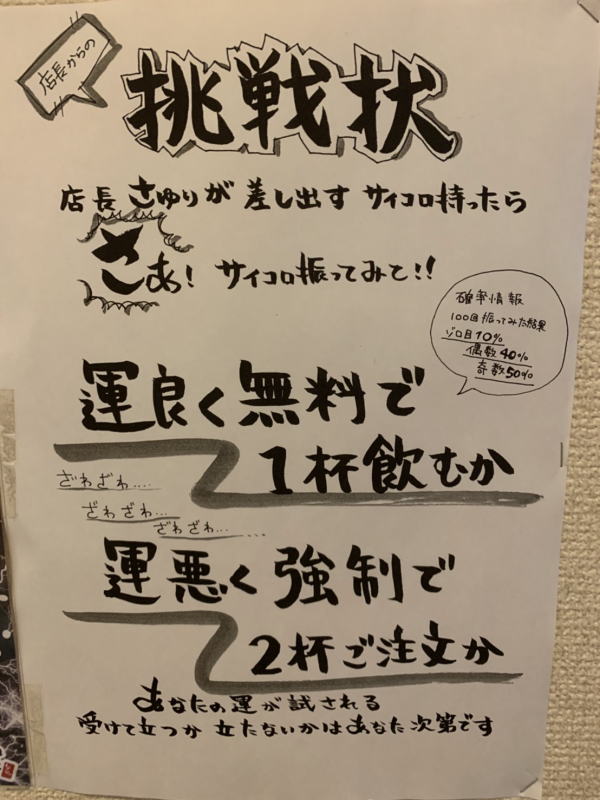 店長からの
挑戦状
店長 さゆりが 差し出す サイコロ持ったら
さあ! サイコロ振ってみて!!
確率情報
100回振ってみた結果
ゾロ目10%
偶数40%
奇数50%
運良く無料で
1杯飲むか
ざわざわ....
ざわざわ...
ざわざわ...
運悪く強制で
2杯ご注文か
あなたの運が試される
受けて立つか 立たないかはあなた次第です